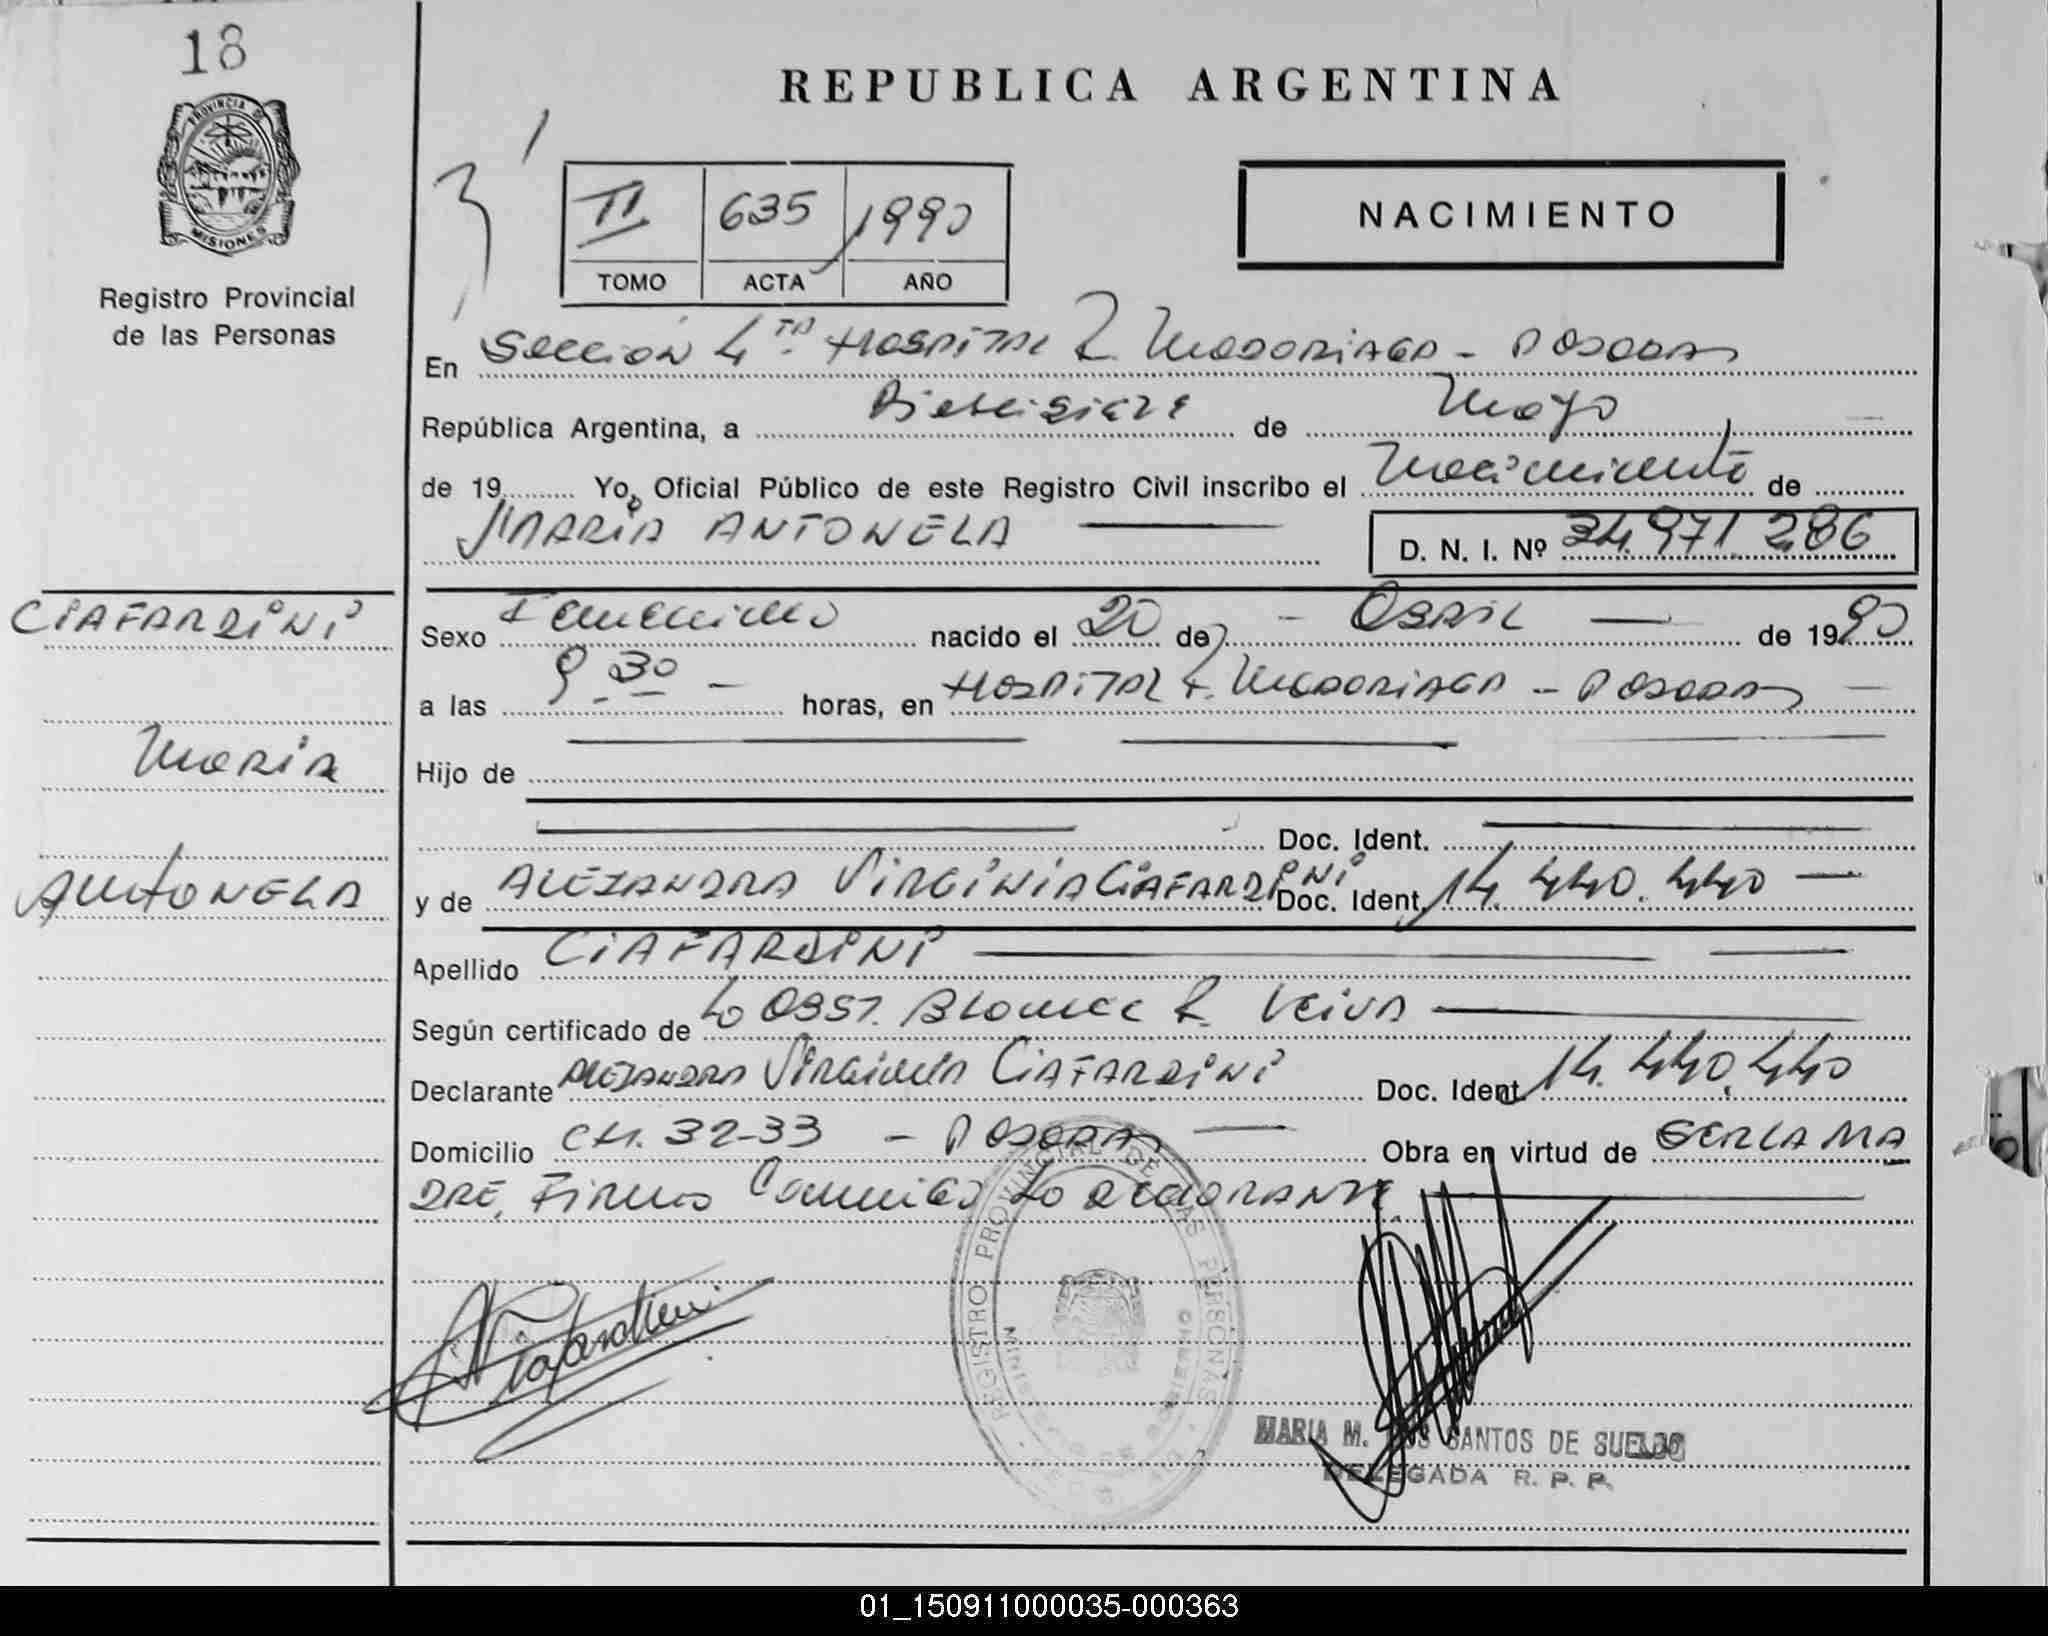 18
PROVINCIA DE
MISIONES
Registro Provincial
de las Personas
REPUBLICA ARGENTINA
II 635 1990
TOMO ACTA AÑO
NACIMIENTO
En Seccion 4ta Hospital R. Madariaga - Posadas
República Argentina, a Diecisiete de Mayo
de 19 Yo, Oficial Público de este Registro Civil inscribo el Nacimiento de
MARIA ANTONELA
D. N. I. Nº 34.971.286
CIAFARDINI
Maria
ANTONELA
Sexo Femenino nacido el 20 de - Abril de 1990
a las 9.30 - horas, en Hospital R. Madariaga - Posadas
Hijo de
Doc. Ident.
y de ALEJANDRA VIRGINIA CIAFARDINI Doc. Ident. 14.440.440
Apellido CIAFARDINI
Según certificado de La Obst. Blanca R. Veiva
Declarante ALEJANDRA Virginia CIAFARDINI Doc. Ident. 14.440.440
Domicilio CH. 32-33 - Posadas Obra en virtud de SER LA MA
DRE, Firma Conmigo La declarante.
REGISTRO PROVINCIAL DE LAS PERSONAS
MINISTERIO DE GOBIERNO
MARIA M. SANTOS DE
DELEGADA R. P. P.
01_150911000035-000363